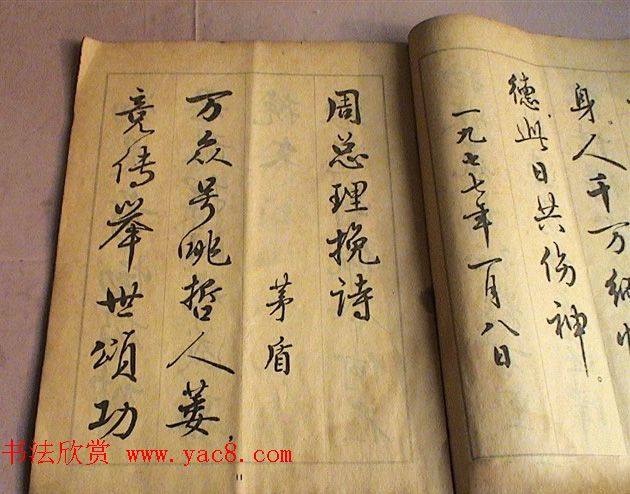 身人千万
德此日共伤神。
一九七七年一月八日
周总理挽诗
茅盾
万众号咷哲人萎，
竞传举世颂功
书法欣赏 www.yac8.com